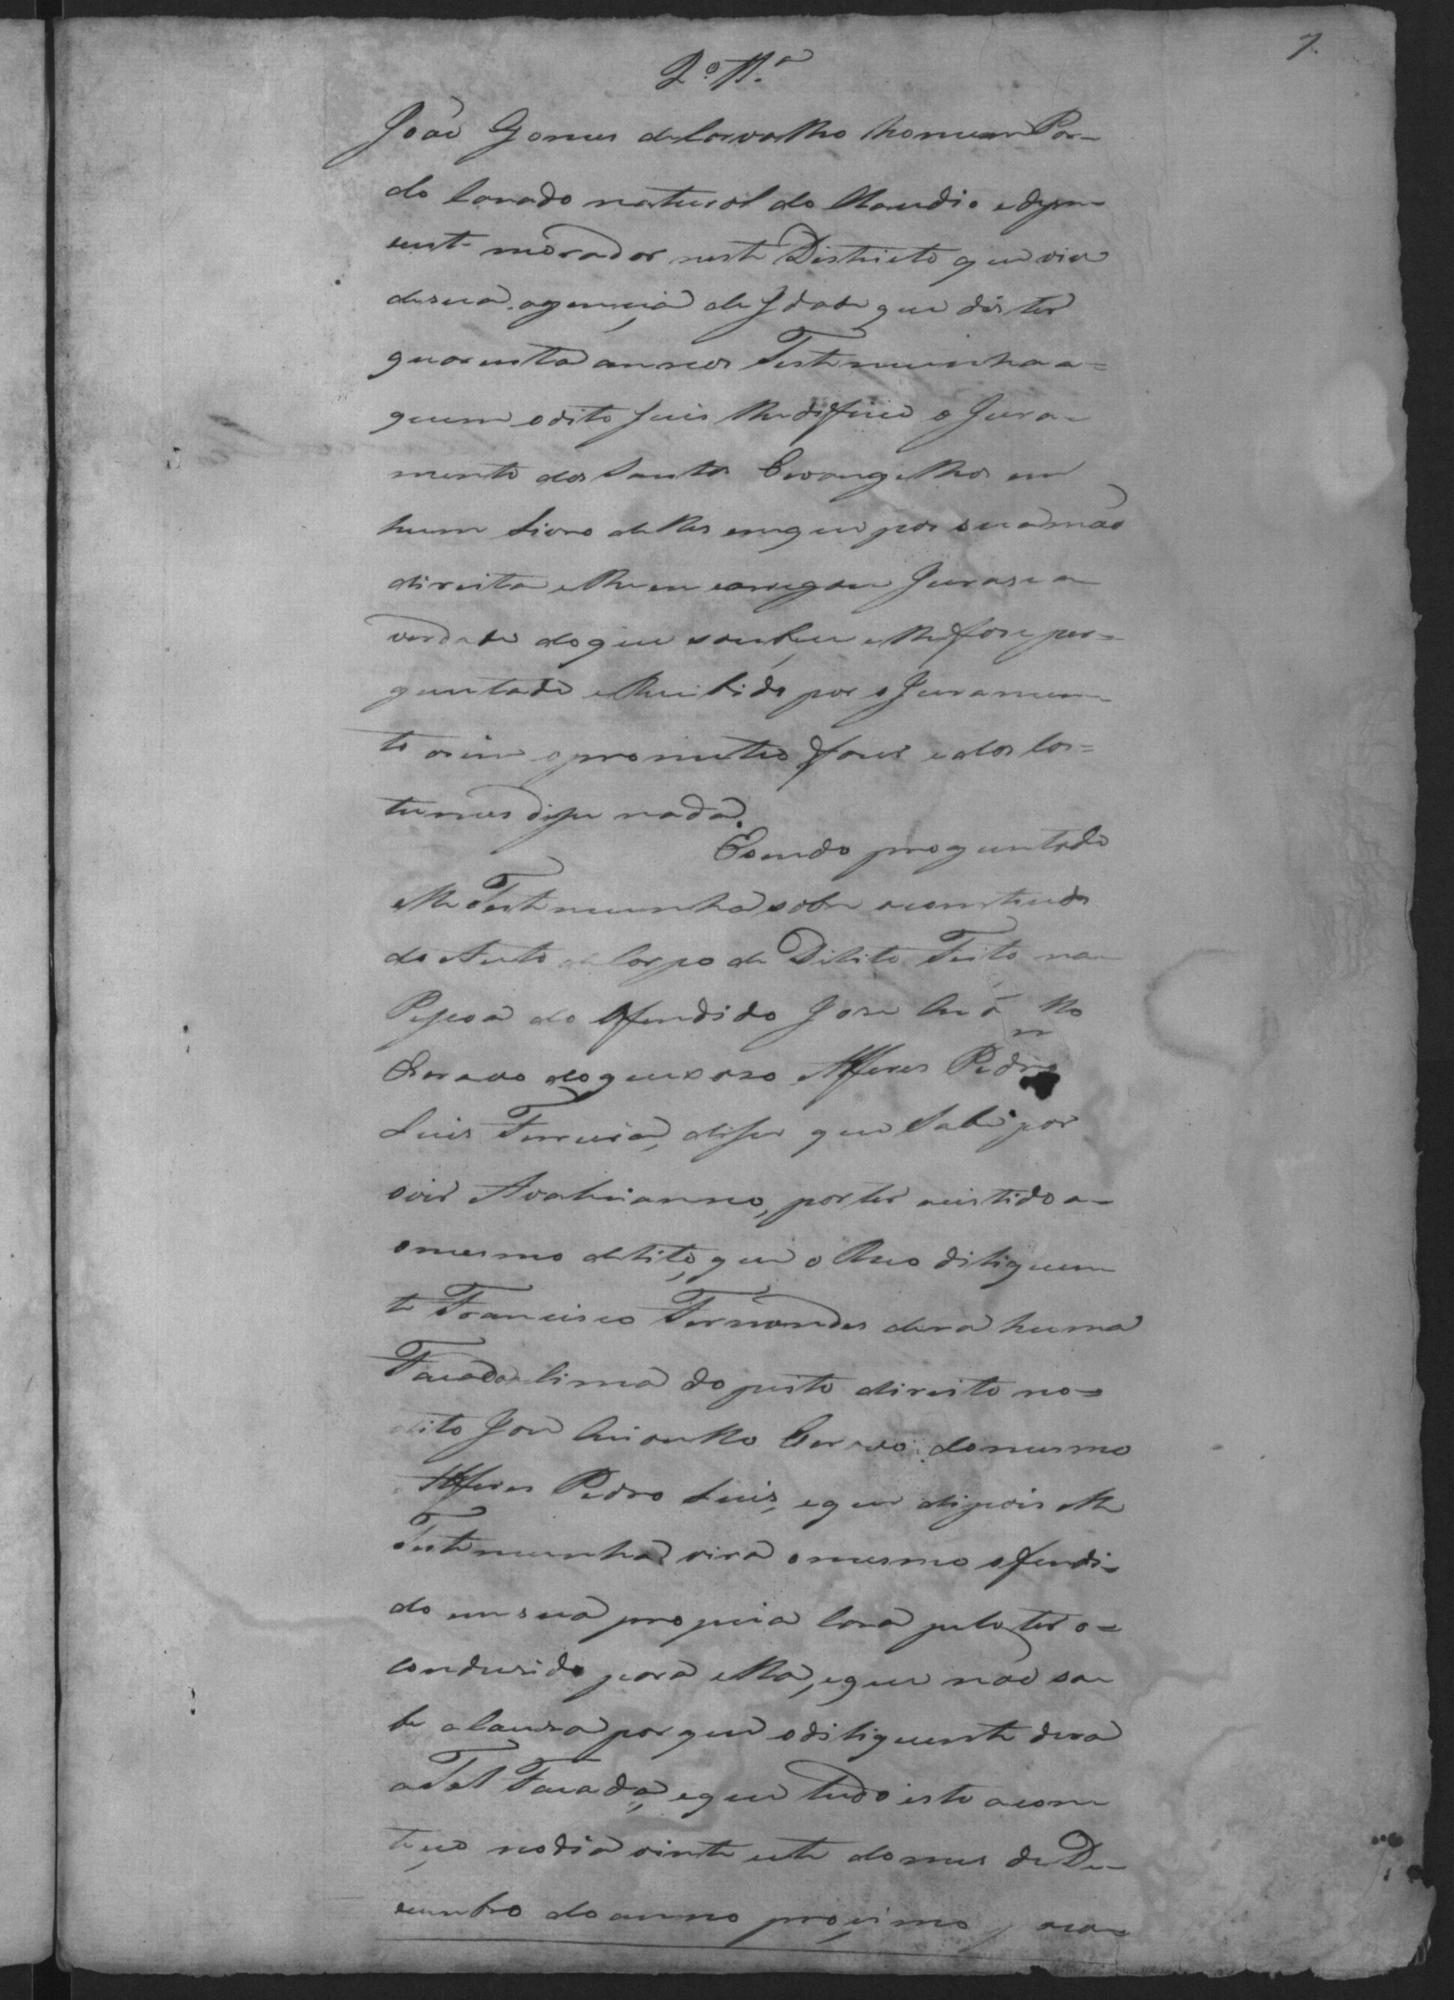 7.
2.ª T.ª
João Gomes de Carvalho homem Par-
do Cazado natural do Claudio e de prez-
ente morador neste Districto que vive
de sua agencia de Idade que dis ter
quarenta annos Testemunha a-
quem o dito Juis lhe difirio o Jura-
mento dos Santos Evangelhos em
hum Livro delles em que pos sua mão
direita e lhe encarregou Jurase a
verdade do que soubese e lhe fose per-
guntado e Recibido por o Juramen-
to asim o prometeo fazer e dos Cos-
tumes dise nada.
E sendo preguntado
elle Testemunha sobre o contheudo
do Auto de Corpo de Dilito Feito na
Pesoa do Ofendido Jose
Escravo do queixoso Alferes Pedro
Luis Ferreira, dise que Sabe por
ouvir por ter asistido a-
o mesmo delito, que o Reo diliquen-
te Francisco Fernandes dera huma
Facada Sima do peito direito no-
dito Jose Escravo do mesmo
Alferes Pedro Luis, e que dipois elle
Testemunha vira o mesmo ofendi-
do em sua propria Caza pelo ter o-
condusido para ella, e que não sa-
be a Cauza por que o diliquente dera
a Tal Facada, e que tudo isto acon-
teçeo no dia vinte sete do mes de De-
zembro do anno proçimo